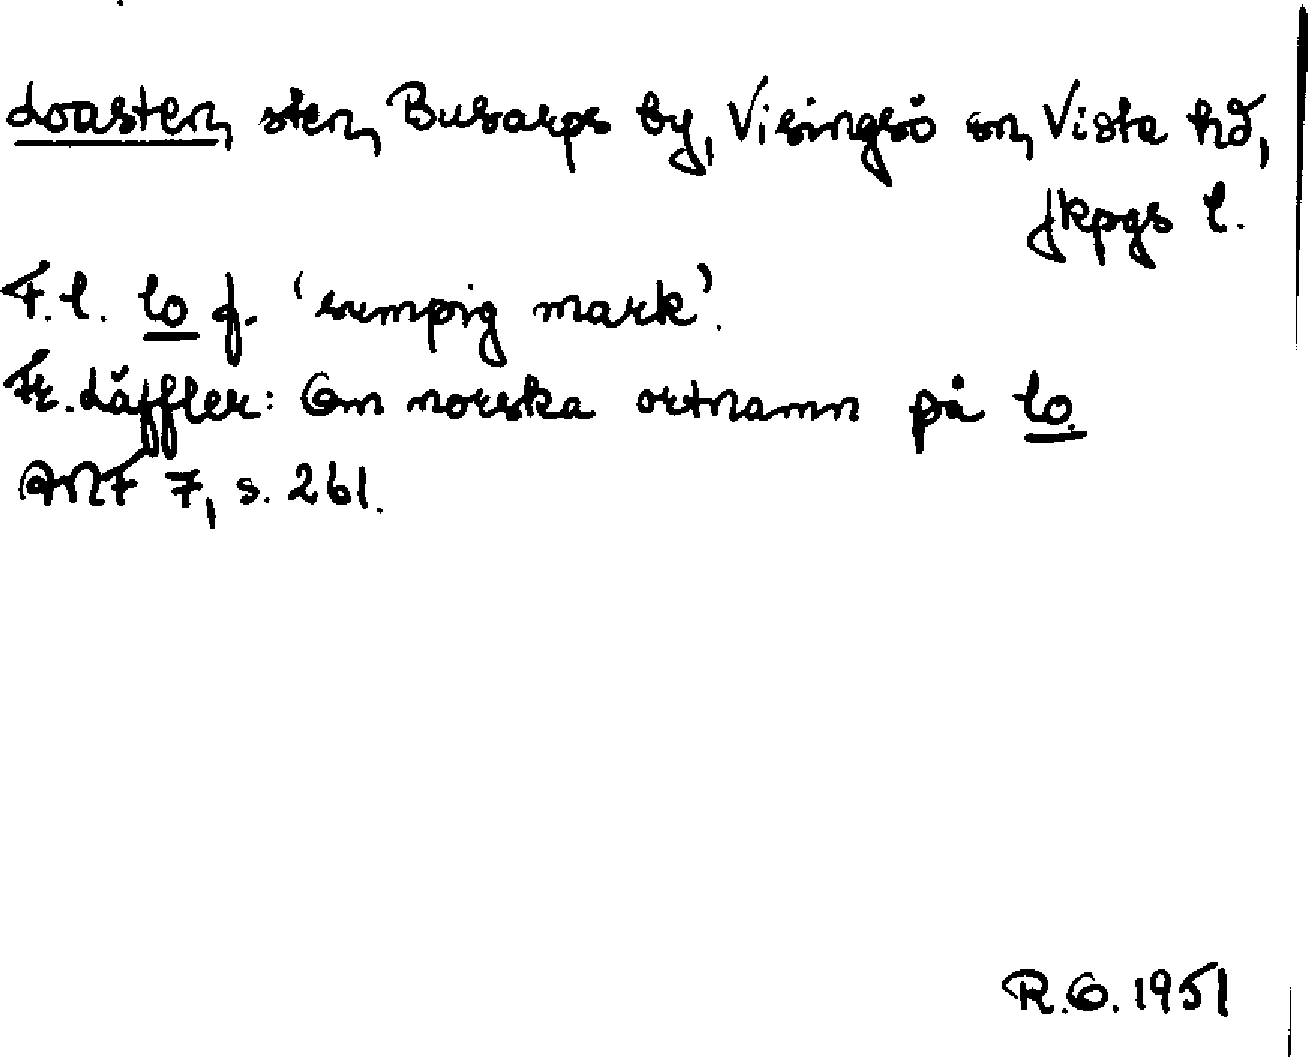 Loasten, sten, Busarps by, Visingsö sn, Vista hd,
Jkpgs l.
F.l. lo f. 'sumpig mark'.
Fr. Läffler: Om norska ortnamn på lo.
ANF 7, s. 261.
R.O. 1951